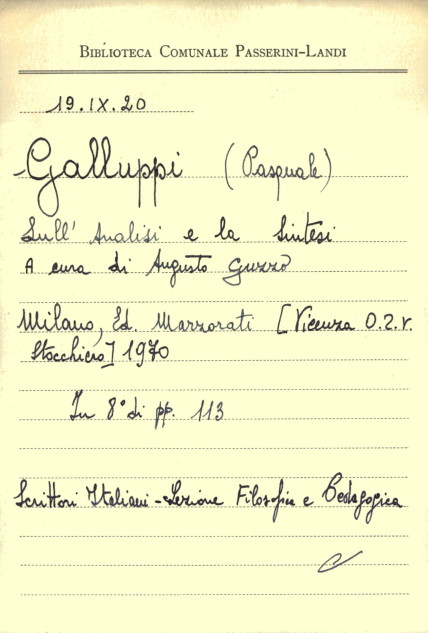 BIBLIOTECA COMUNALE PASSERINI-LANDI
19.IX.20
Galluppi (Pasquale)
Sull' Analisi e la Sintesi
A cura di Augusto Guzzo
Milano, Ed. Marzorati [Vicenza O.Z.V.
Stocchiero] 1970
In 8° di pp. 113
Scrittori Italiani - Sezione Filosofia e Pedagogica